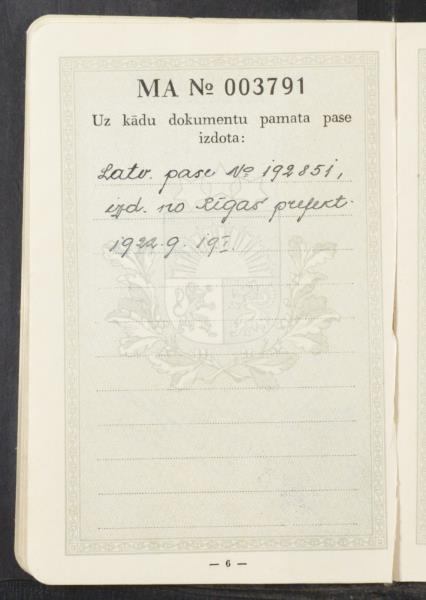 MA № 003791
Uz kādu dokumentu pamata pase
izdota:
Latv. pase № 192851,
izd. no Rīgas prefekt.
1922. g. 19 I.
— 6 —